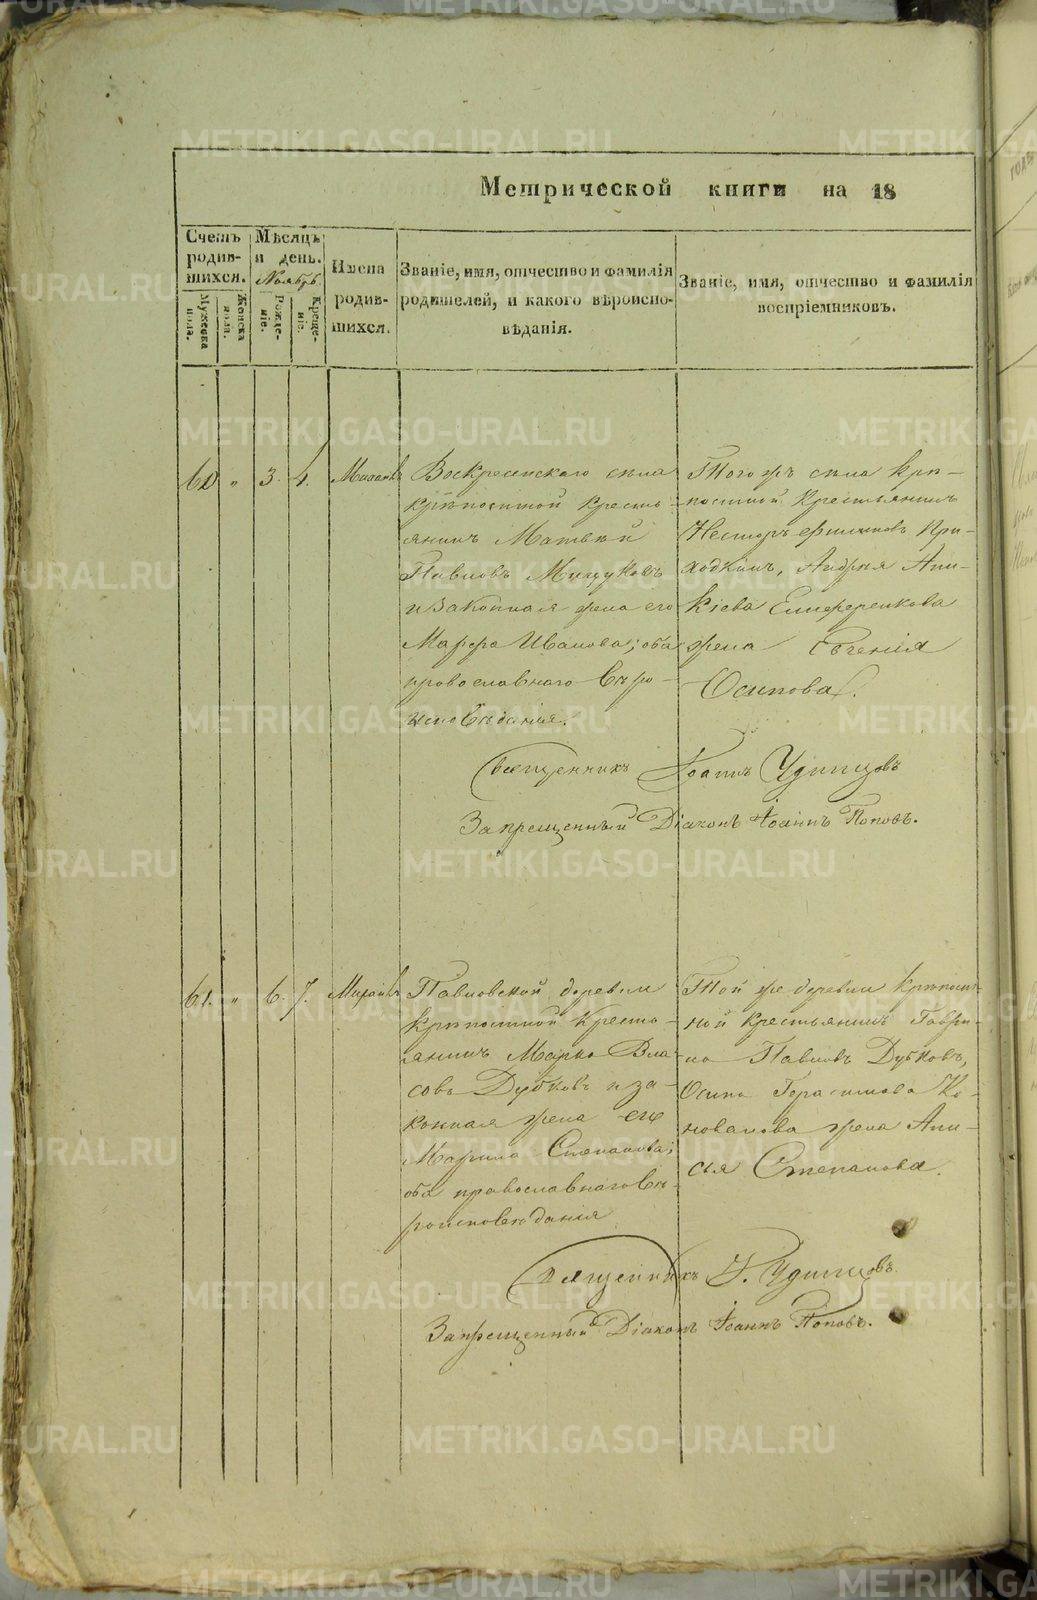 METRIKI.GASO-URAL.RU
Метрической книги на 18
Счетъ родив-шихся.
Мужеска пола.
Женска пола.
Мѣсяцъ и день.
Ноябрь.
Рожде-ніе.
Креще-ніе.
Имена родив-шихся.
Званіе, имя, отчество и фамилія
родителей, и какого вѣроиспо-
вѣданія.
Званіе, имя, отчество и фамилія
воспріемниковъ.
60 " 3. 4. Михаилъ
Воскресенскаго села
крѣпостной кресть
янинъ Матвей
Павловъ
и законная жена его
Марфа Иванова; оба
православнаго вѣро
исповѣданія.
Того жъ села крѣ-
постной Крестьянинъ
Несторъ При-
ходкинъ, Андрея Ани-
кіева
жена Евгенія
Осипова.
Священникъ Іоаннъ Удинцовъ
Запрещенный Діаконъ Іоаннъ Поповъ.
61. " 6. 7. Михаилъ
Павловской деревни
крѣпостной Кресть
янинъ Марко Вла
совъ Дубковъ и за-
конная жена его
Марина Степанова;
оба православнаго вѣ-
роисповѣданія
Той же деревни Крѣпост-
ной крестьянинъ Гаври-
ла Павловъ Дубковъ,
Осипа Герасимова Ко-
новалова жена Ани-
сья Степанова.
Священникъ І. Удинцовъ.
Запрещенный Діаконъ Іоаннъ Поповъ.